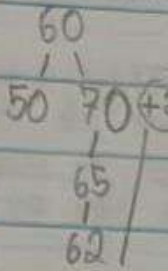 60
50 70
65
62